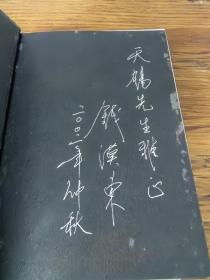 天鶴先生雅正
錢漢東
二〇〇二年仲秋